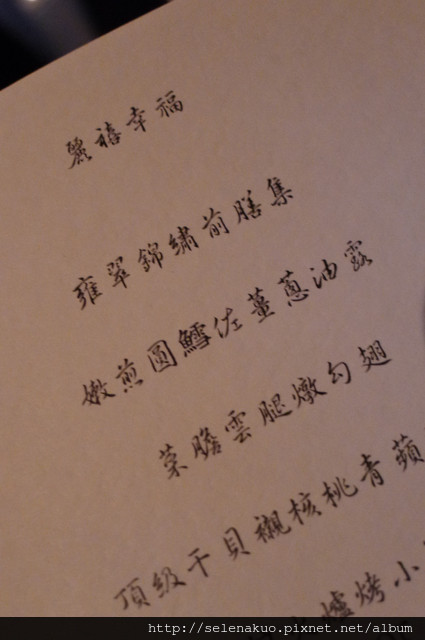 麗禧幸福
雍翠錦繡前膳集
嫩煎圓鱈佐薑蔥油露
菜膽雲腿燉勾翅
頂級干貝襯核桃青蘋
爐烤小
http://selenakuo.pixnet.net/album